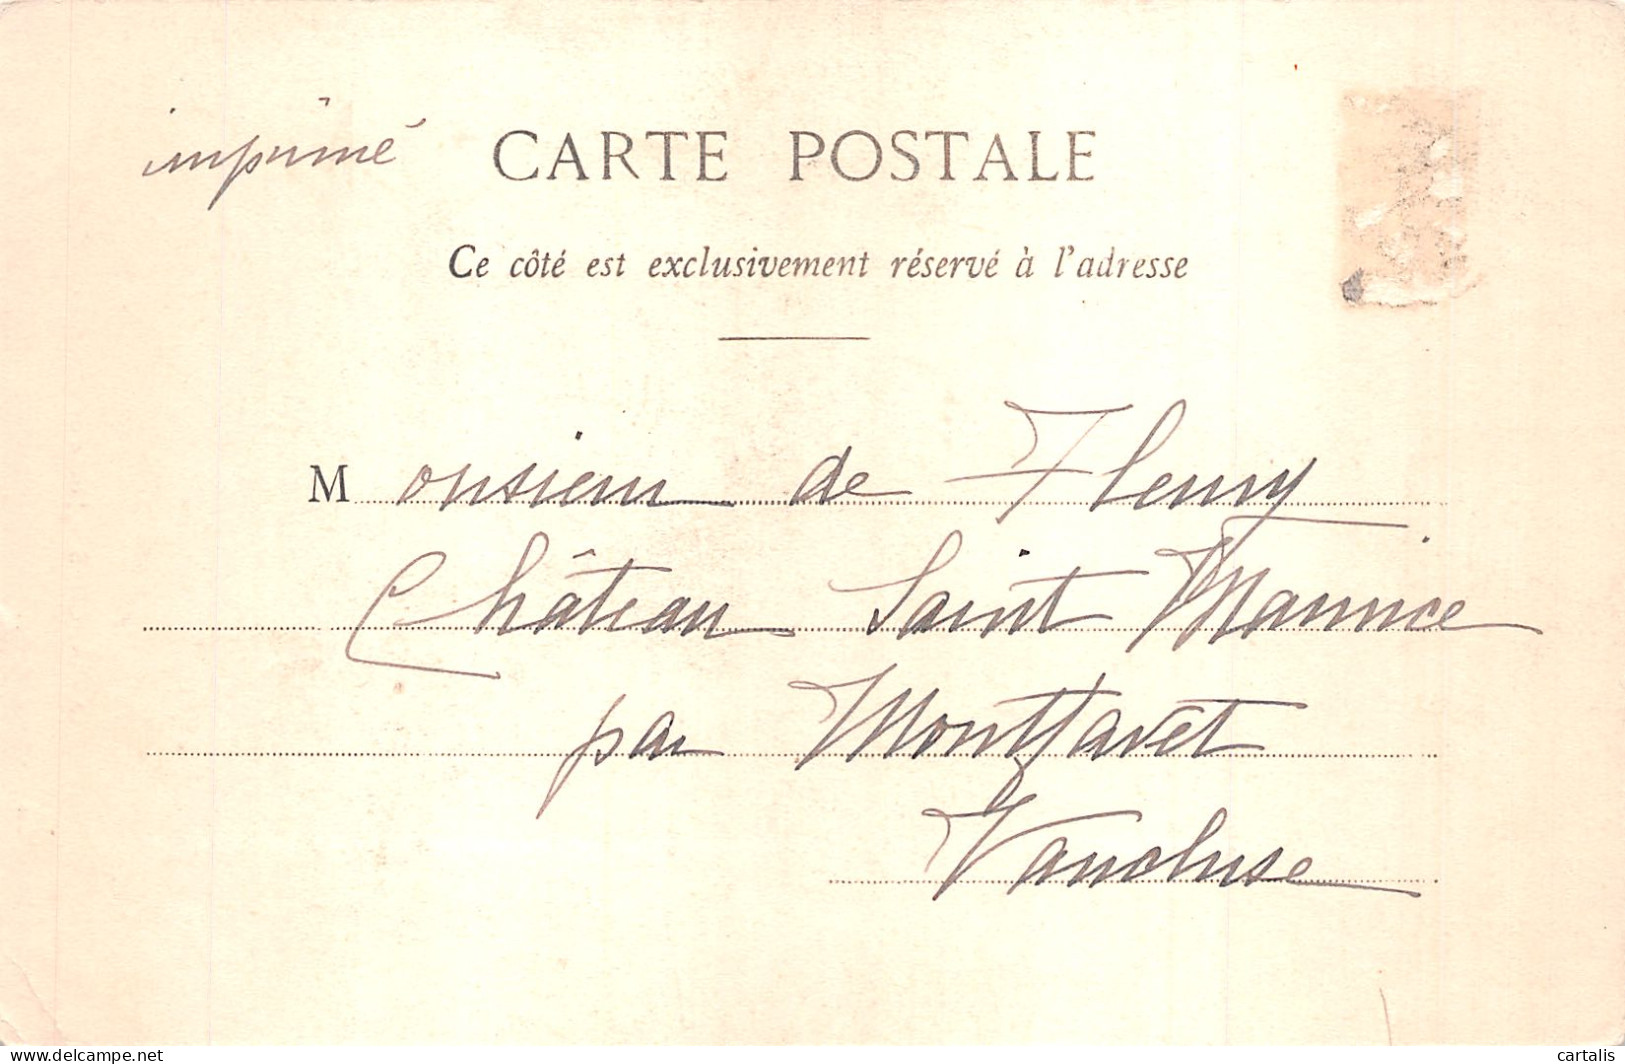 imprimé
CARTE POSTALE
Ce côté est exclusivement réservé à l'adresse
Monsieur de Fleury
Château Saint Maurice
par Montfavet
Vaucluse
www.delcampe.net
cartalis